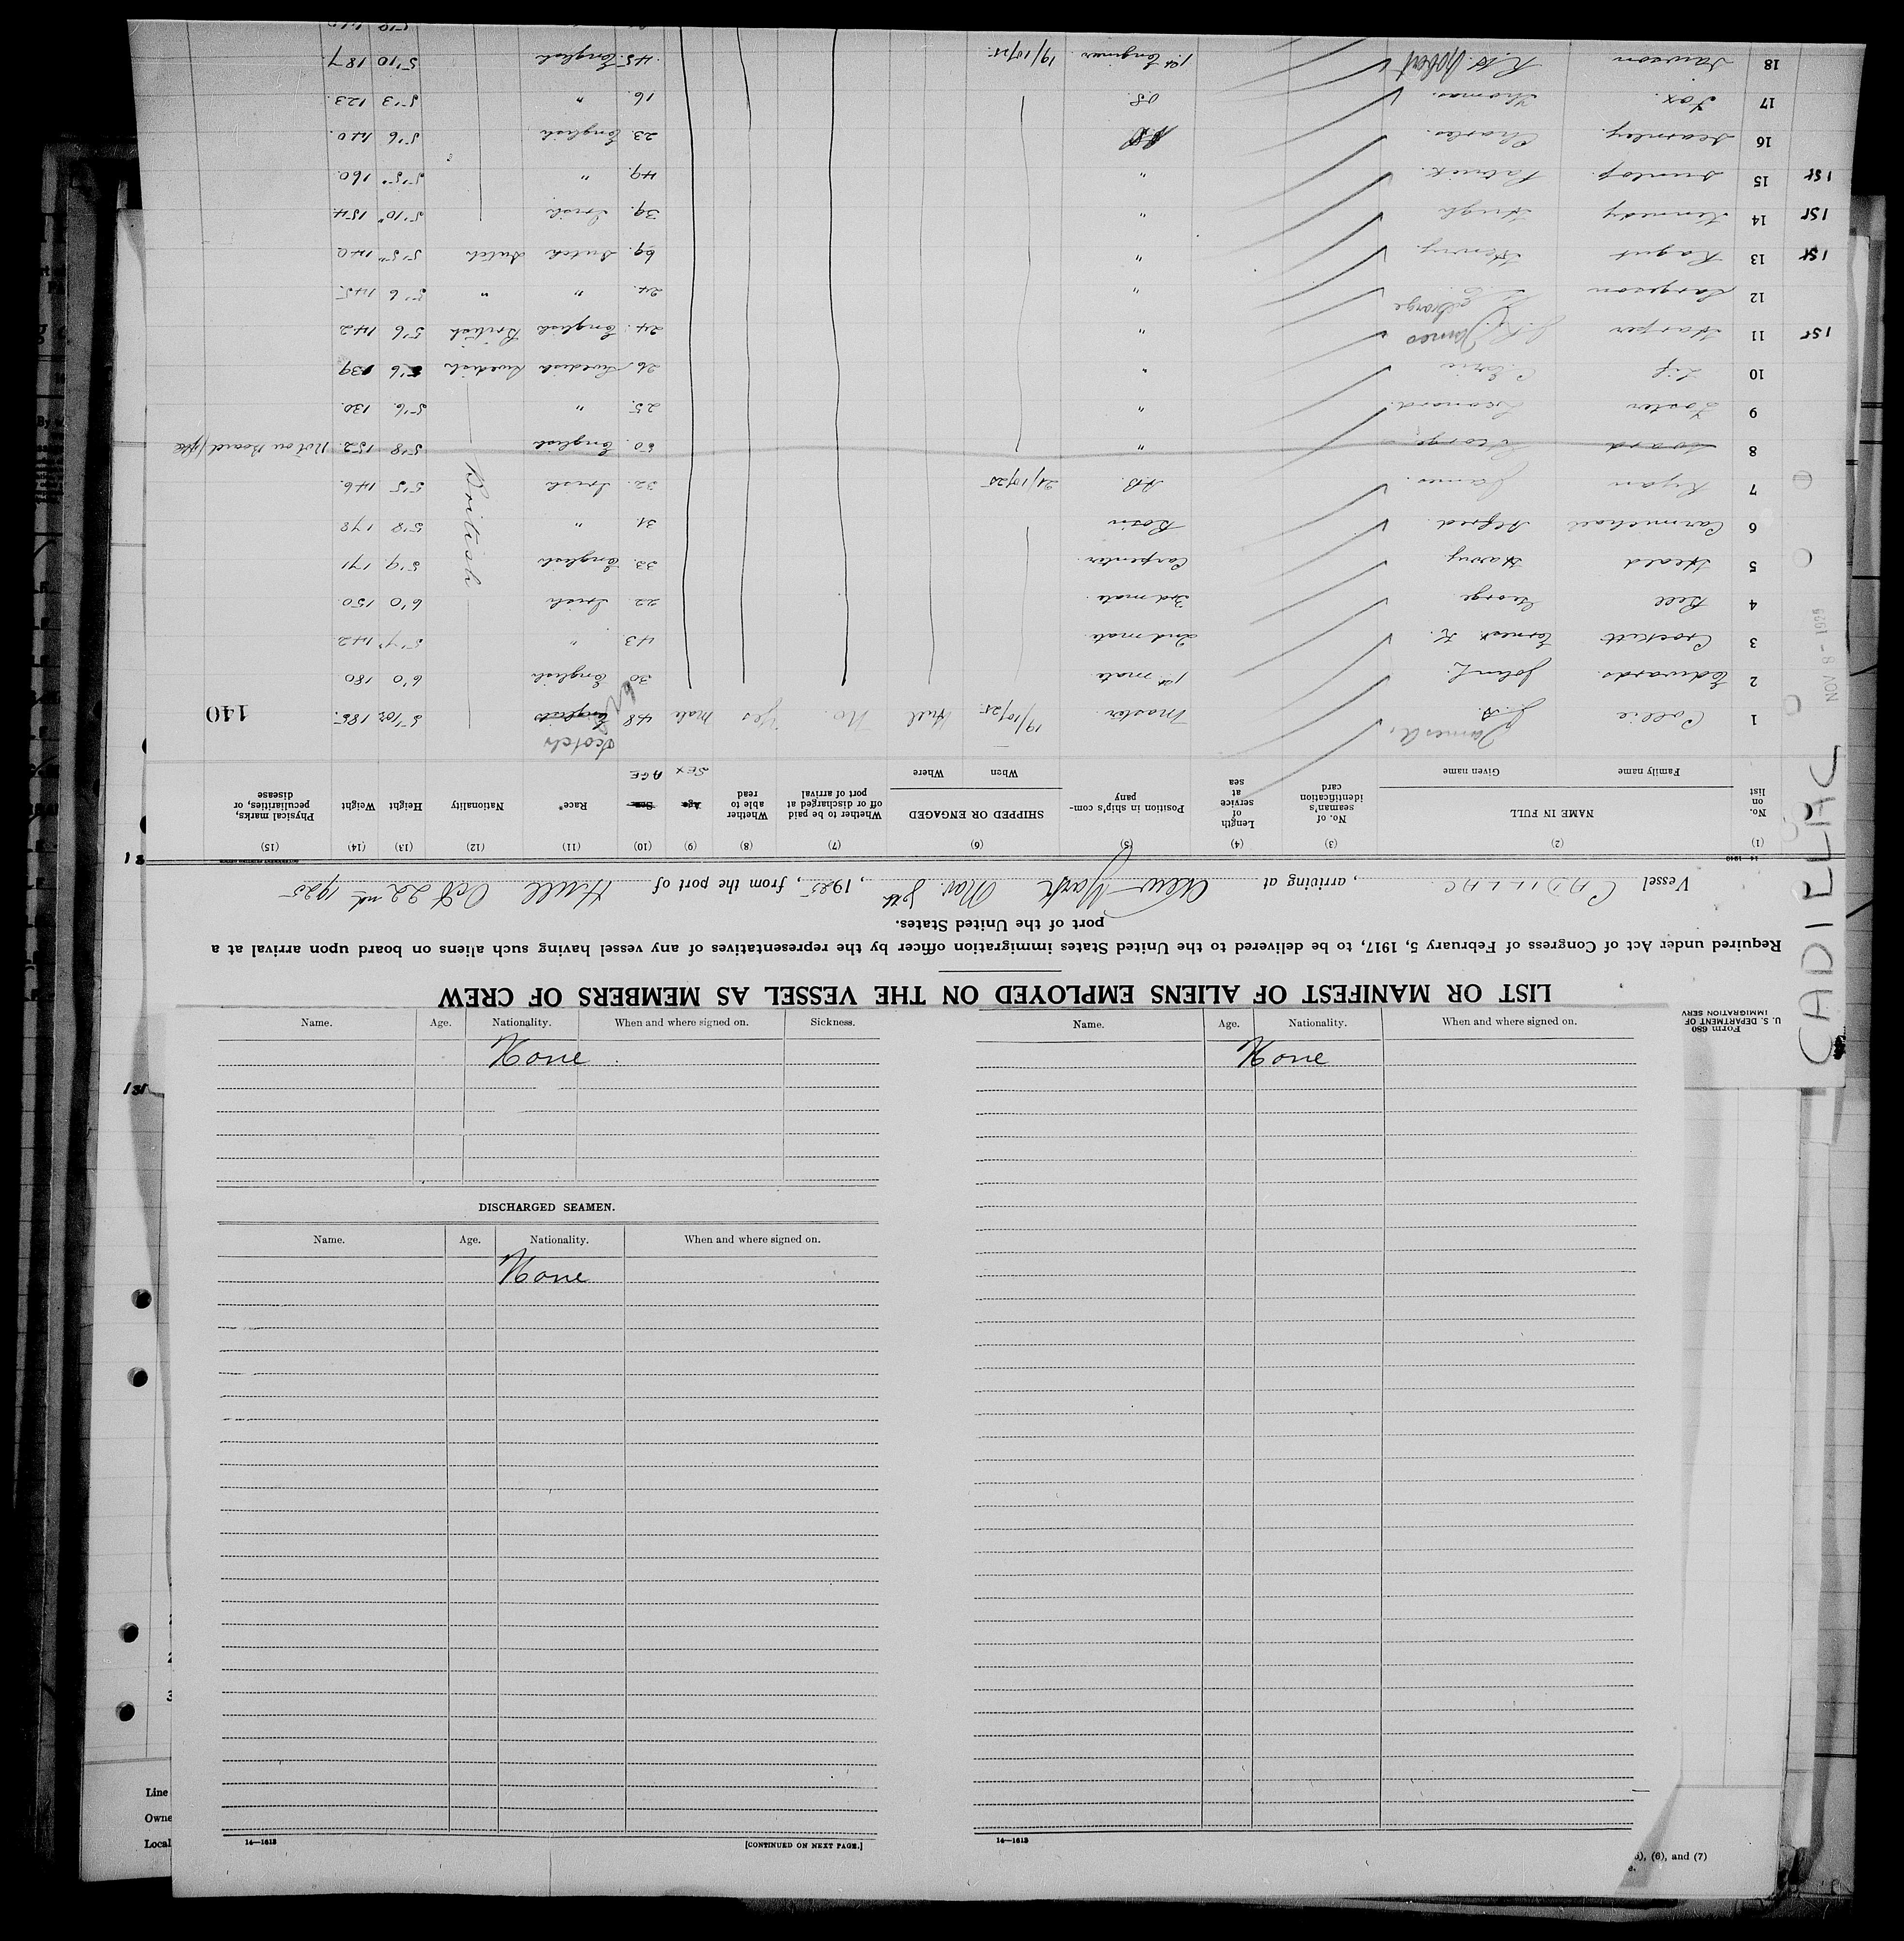 Form 680
U. S. DEPARTMENT OF
IMMIGRATION SERV
LIST OR MANIFEST OF ALIENS EMPLOYED ON THE VESSEL AS MEMBERS OF CREW
Required under Act of Congress of February 5, 1917, to be delivered to the United States immigration officer by the representatives of any vessel having such aliens on board upon arrival at a
port of the United States.
Vessel CADILLAC, arriving at New York Nov. 8th, 1925, from the port of Hull Oct 22nd 1925
14-1240 GOVERNMENT PRINTING OFFICE
(1) (2) (3) (4) (5) (6) (7) (8) (9) (10) (11) (12) (13) (14) (15)
No. on list NAME IN FULL Family name Given name No. of seaman's identification card Length of service at sea Position in ship's company SHIPPED OR ENGAGED When Where Whether to be paid off or discharged at port of arrival Whether able to read Age SEX Sex AGE Race* Nationality Height Weight Physical marks, peculiarities, or disease
1 Collie J. A. James A. Master 19/10/25 Hull No. Yes Male 48 English Scotch 5'10½ 185. 140
2 Edwards. John L. 1st mate 30 English 6'0 180
3 Crockett Ernest H. 2nd mate 43 " 5'7" 142
4 Bell George. 3rd mate. 22 Irish 6'0 150
5 Heald Harry. Carpenter 33. English 5'9. 171
6 Carmichael Alfred. Bosun 31 " 5'8 178
British
7 Ryan James. A.B. 21/10/25 32. Irish 5'5 146.
8 Ward George. " 60. English 5'8 152. Not on Board
9 Foster Leonard. " 25. " 5'6. 130.
10 Lif C. Eric " 26. Swedish Swedish 5'6 139
1st 11 Harper J. R. James " 24. English British 5'6 142
12 Sargeson George " 24. " " 5'6 145.
1st 13 Ragut Henry. " 69. Dutch Dutch 5'5" 140
1st 14 Kennedy Hugh " 39. Irish 5'10" 154.
1st 15 Dunlop. Patrick. " 49. " 5'5" 160.
16 Fearnley. Charles. 23. English 5'6 140.
17 Fox. Thomas. O.S. 16. " 5'3 123.
18 Dawson R. W. Robert 1st Engineer. 19/10/25. 45. English 5'10 187.
CADILLAC
NOV 8 - 1925
Name. Age. Nationality. When and where signed on. Sickness.
None.
DISCHARGED SEAMEN.
Name. Age. Nationality. When and where signed on.
None
14—1613 [CONTINUED ON NEXT PAGE.]
Name. Age. Nationality. When and where signed on.
None
14—1613
Line
Owne
Local
(6), and (7)